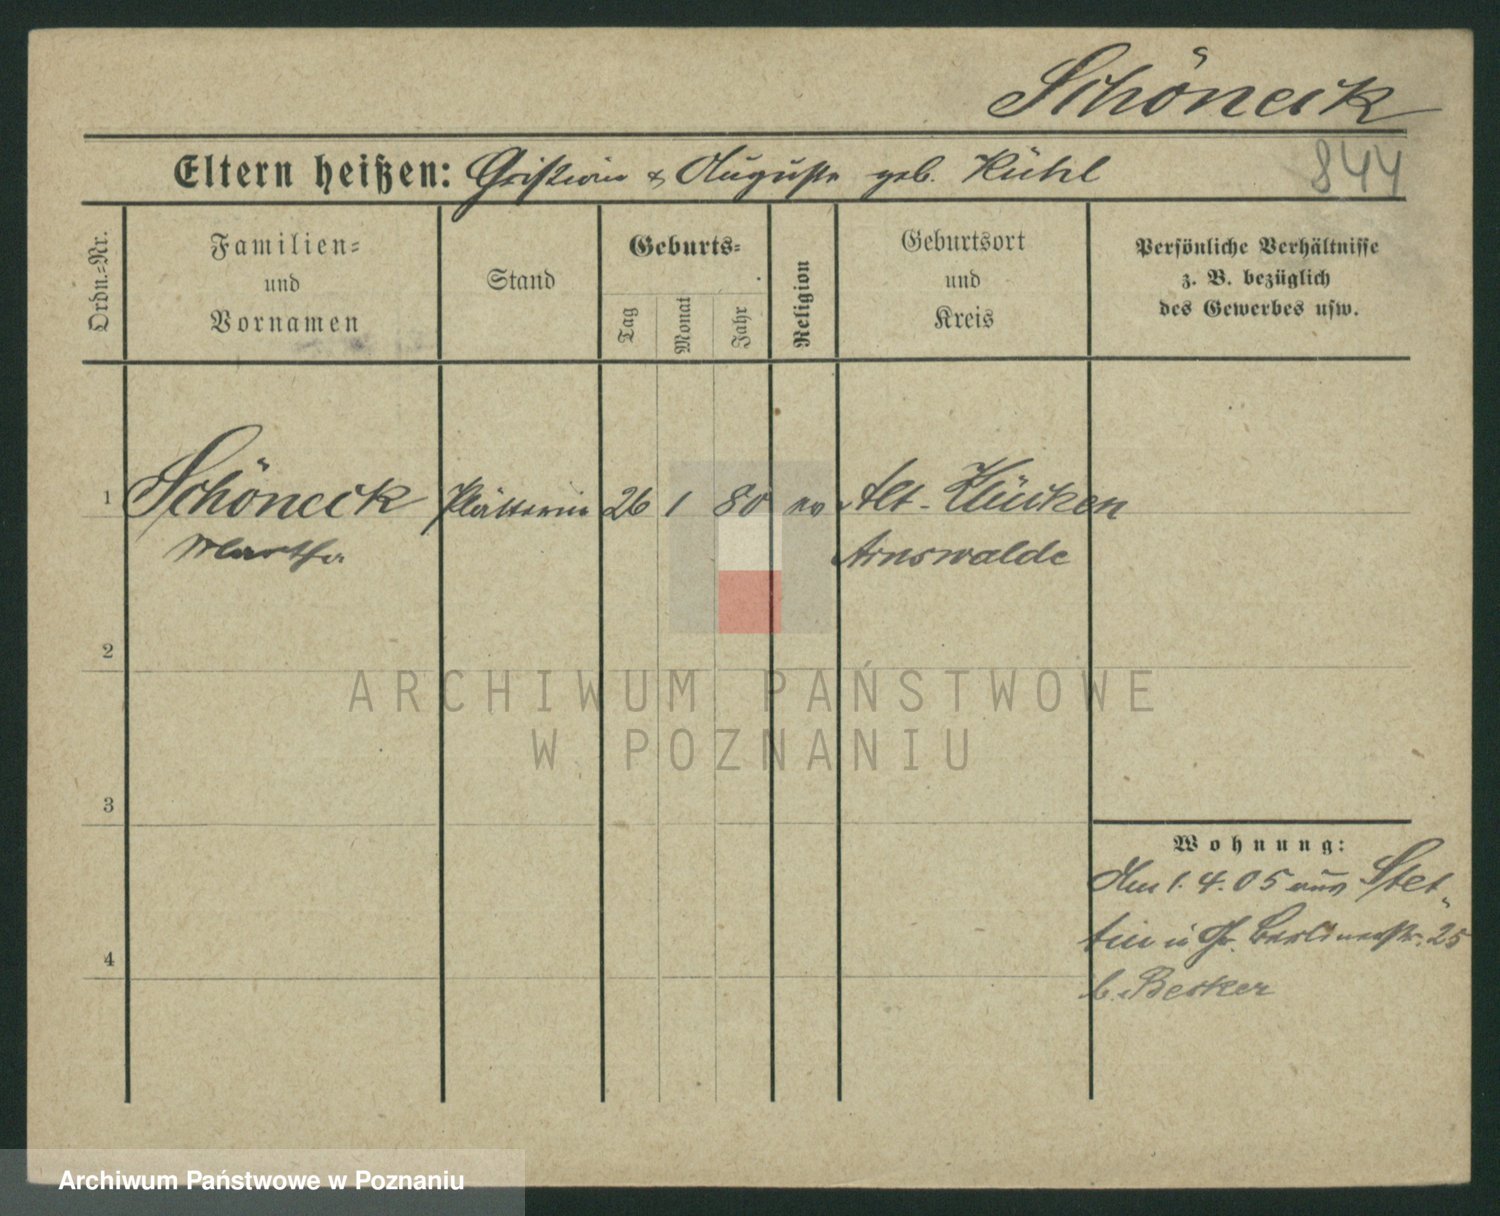 Schöneck
Eltern heißen: Cristian & Auguste geb. Kühl
844
Ordn.=Nr.
Familien=
und
Vornamen
Stand
Geburts=
Tag
Monat
Jahr
Religion
Geburtsort
und
Kreis
Persönliche Verhältnisse
z. B. bezüglich
des Gewerbes usw.
1 Schöneck Plätterin 26 1 80 ev Alt-Klücken
Martha Arnswalde
2
ARCHIWUM PAŃSTWOWE
W POZNANIU
3
Wohnung:
Am 1.4.05 aus Stet„
tin Gr. Berlinerstr. 25
4
b. Becker
Archiwum Państwowe w Poznaniu